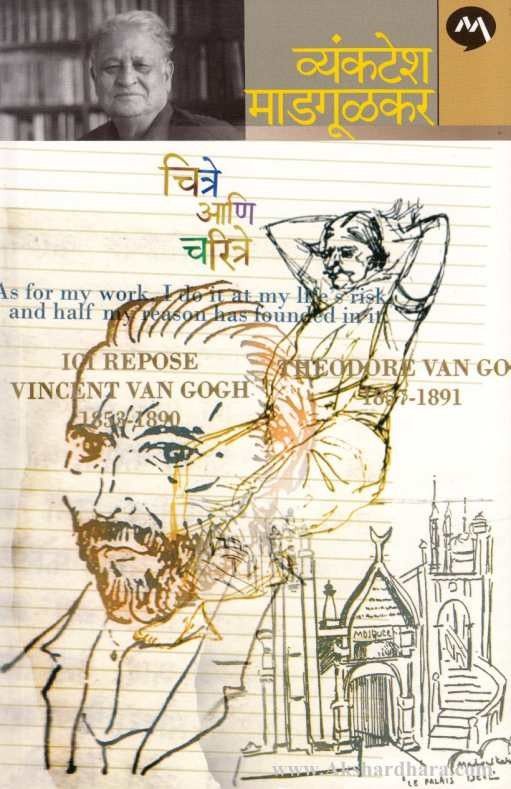 व्यंकटेश
माडगूळकर
चित्रे
आणि
चरित्रे
As for my work, I do it at my life's risk
and half my reason has founded in it
ICI REPOSE
VINCENT VAN GOGH
1853-1890
THEODORE VAN GO
1857-1891
LE PALAIS IDEAL
www.Akshardhara.com